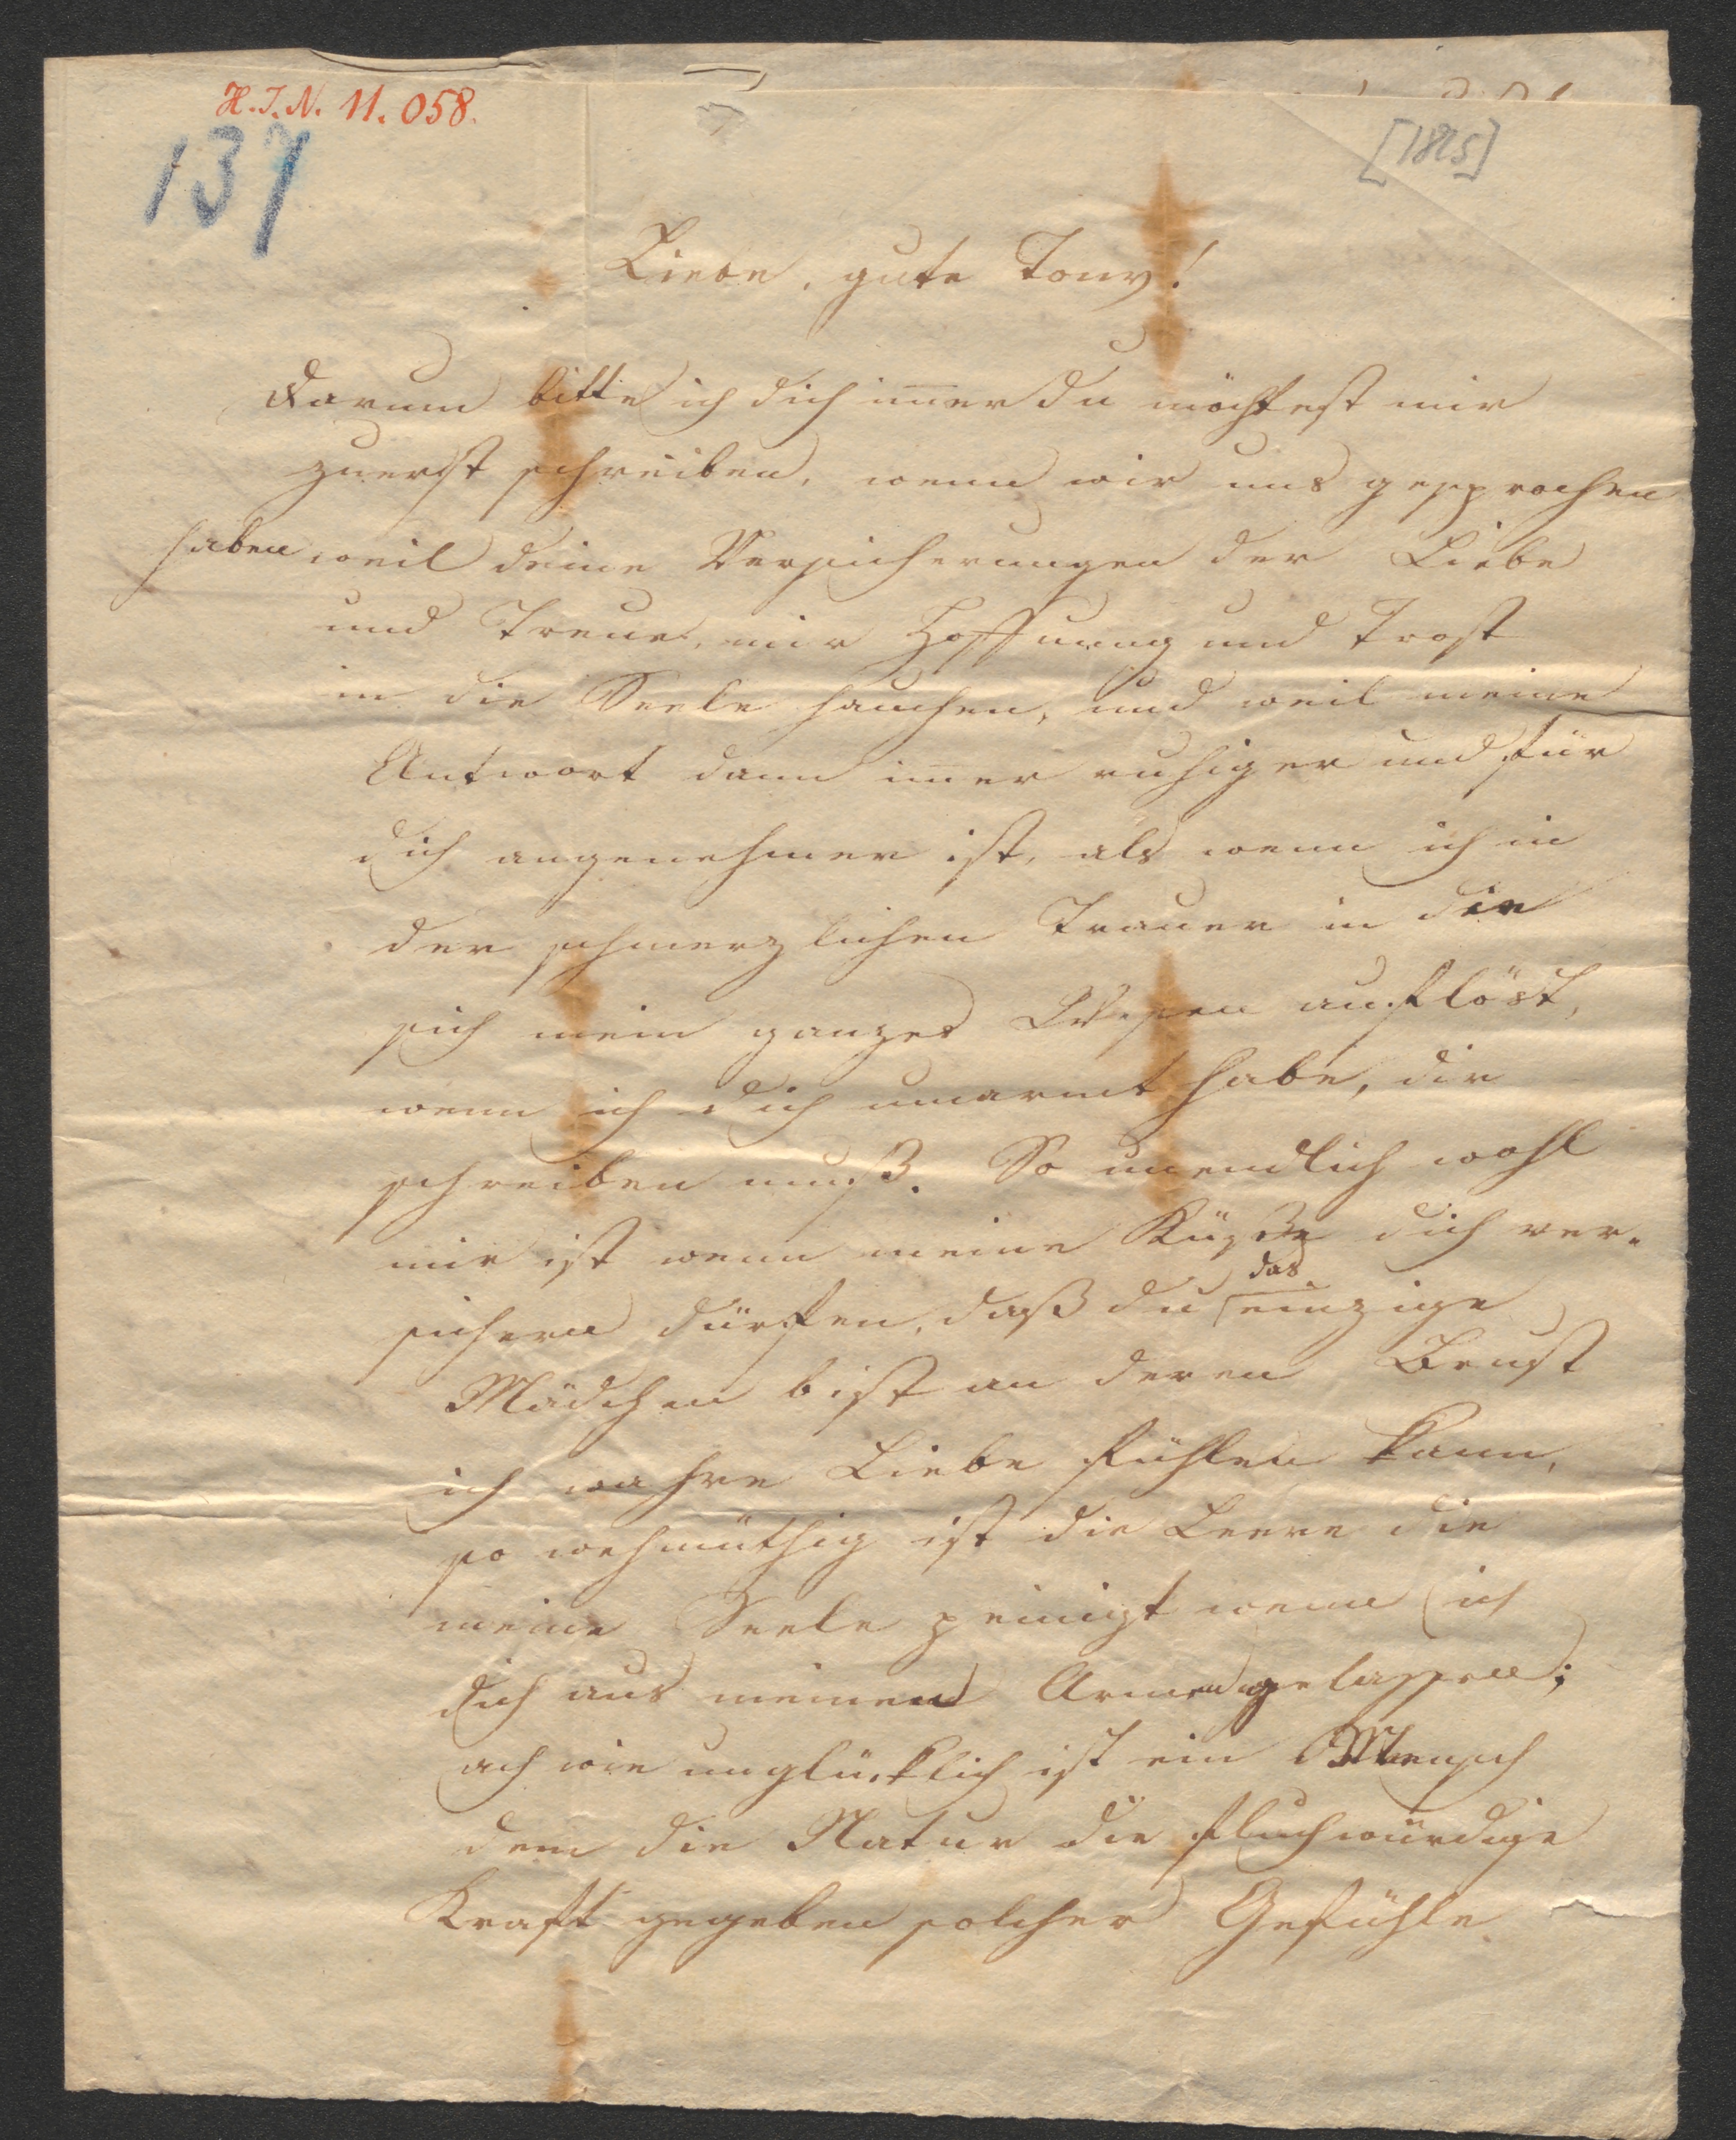 H.I.N. 11.058.
137
[1825]
Liebe, gute Tony!
Darum bitte ich dich im̅er du möchtest mir
zuerst schreiben, wenn wir uns gesprochen
haben weil deine Versicherungen der Liebe
und Treue, mir Hoffnung und Trost
in die Seele hauchen, und weil meine
Antwort dann im̅er ruhiger und für
dich angenehmer ist, als wenn ich in
der schmerzlichen Trauer in die
sich mein ganzes Wesen auflöst,
wenn ich dich umarmt habe, dir
schreiben muß. So unendlich wohl
mir ist wenn meine Küße dich ver-
sichern dürfen, daß du das einzige
Mädchen bist an deren Brust
ich wahre Liebe fühlen kann,
so wehmüthig ist die Leere die
meine Seele peinigt wenn ich
dich aus meinen Armen gelassen;
ach wie unglücklich ist ein Mensch
dem die Natur die fluchwürdige
Kraft gegeben solcher Gefühle